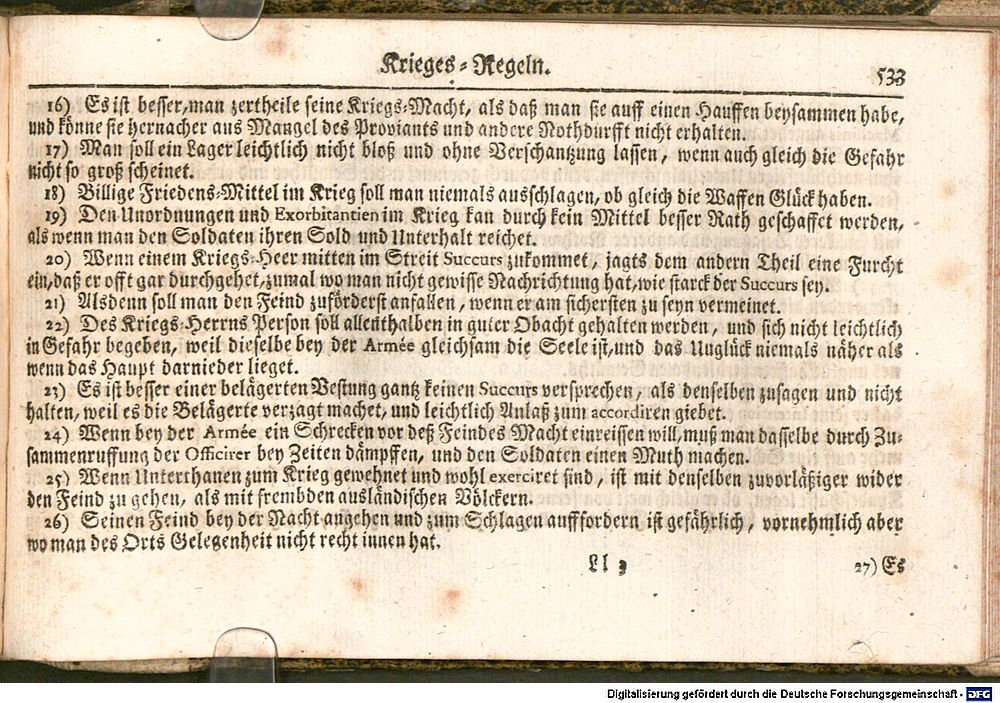 Krieges-Regeln.
533
16) Es ist besser, man zertheile seine Kriegs-Macht, als daß man sie auff einen Hauffen beysammen habe,
und könne sie hernacher aus Mangel des Proviants und andere Nothdurfft nicht erhalten.
17) Man soll ein Lager leichtlich nicht bloß und ohne Verschantzung lassen, wenn auch gleich die Gefahr
nicht so groß scheinet.
18) Billige Friedens-Mittel im Krieg soll man niemals ausschlagen, ob gleich die Waffen Glück haben.
19) Den Unordnungen und Exorbitantien im Krieg kan durch kein Mittel besser Rath geschaffet werden,
als wenn man den Soldaten ihren Sold und Unterhalt reichet.
20) Wenn einem Kriegs-Heer mitten im Streit Succurs zukommet, jagts dem andern Theil eine Furcht
ein, daß er offt gar durchgehet, zumal wo man nicht gewisse Nachrichtung hat, wie starck der Succurs sey.
21) Alsdenn soll man den Feind zuförderst anfallen, wenn er am sichersten zu seyn vermeinet.
22) Des Kriegs-Herrns Person soll allenthalben in guter Obacht gehalten werden, und sich nicht leichtlich
in Gefahr begeben, weil dieselbe bey der Armée gleichsam die Seele ist, und das Unglück niemals näher als
wenn das Haupt darnieder lieget.
23) Es ist besser einer belägerten Vestung gantz keinen Succurs versprechen, als denselben zusagen und nicht
halten, weil es die Belägerte verzagt machet, und leichtlich Anlaß zum accordiren giebet.
24) Wenn bey der Armée ein Schrecken vor deß Feindes Macht einreissen will, muß man dasselbe durch Zu-
sammenruffung der Officirer bey Zeiten dämpffen, und den Soldaten einen Muth machen.
25) Wenn Unterthanen zum Krieg gewehnet und wohl exerciret sind, ist mit denselben zuvorläßiger wider
den Feind zu gehen, als mit frembden ausländischen Völckern.
26) Seinen Feind bey der Nacht angehen und zum Schlagen aufffordern ist gefährlich, vornehmlich aber
wo man des Orts Gelegenheit nicht recht innen hat.
Ll 3
27) Es
Digitalisierung gefördert durch die Deutsche Forschungsgemeinschaft - DFG